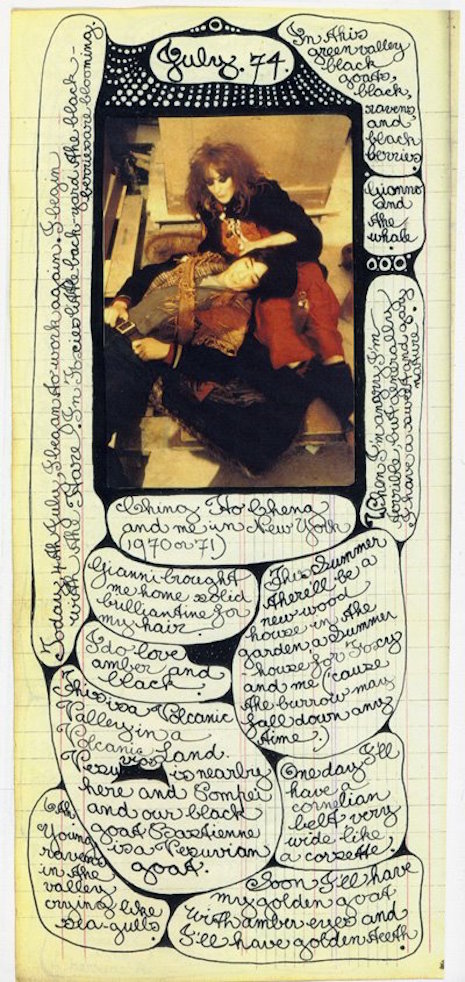 July. 74.
In this
green valley
black
goats,
black,
ravens,
and
black
berries
Gianni
and
the
whale
Today 4th July I began to work again. I begin
with the Hare. In Foxies little back-yard the black-
berries are blooming.
When I'm angry I'm
horrible but generally
I have a sweet and gay
nature.
Ching Ho Cheng
and me in New York
(1970 or 71)
Gianni brought
me home solid
brilliantine for
my hair.
This Summer
there'll be a
new wood
house in the
garden, a Summer
house for Foxy
and me ('cause
the burrow may
fall down any
time.)
I do love
amber and
black.
This is a Volcanic
Valley in a
Volcanic Land.
is nearby
here and Pompei
and our black
goat
is a Peruvian
goat.
One day I'll
have a
cornelian
belt very
wide like
a corsette,
Young
ravens
in the
valley
crying like
sea-gulls
Soon I'll have
my golden goat
with amber eyes and
I'll have golden teeth